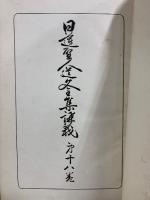 日蓮聖人遺文全集講義 第十八巻